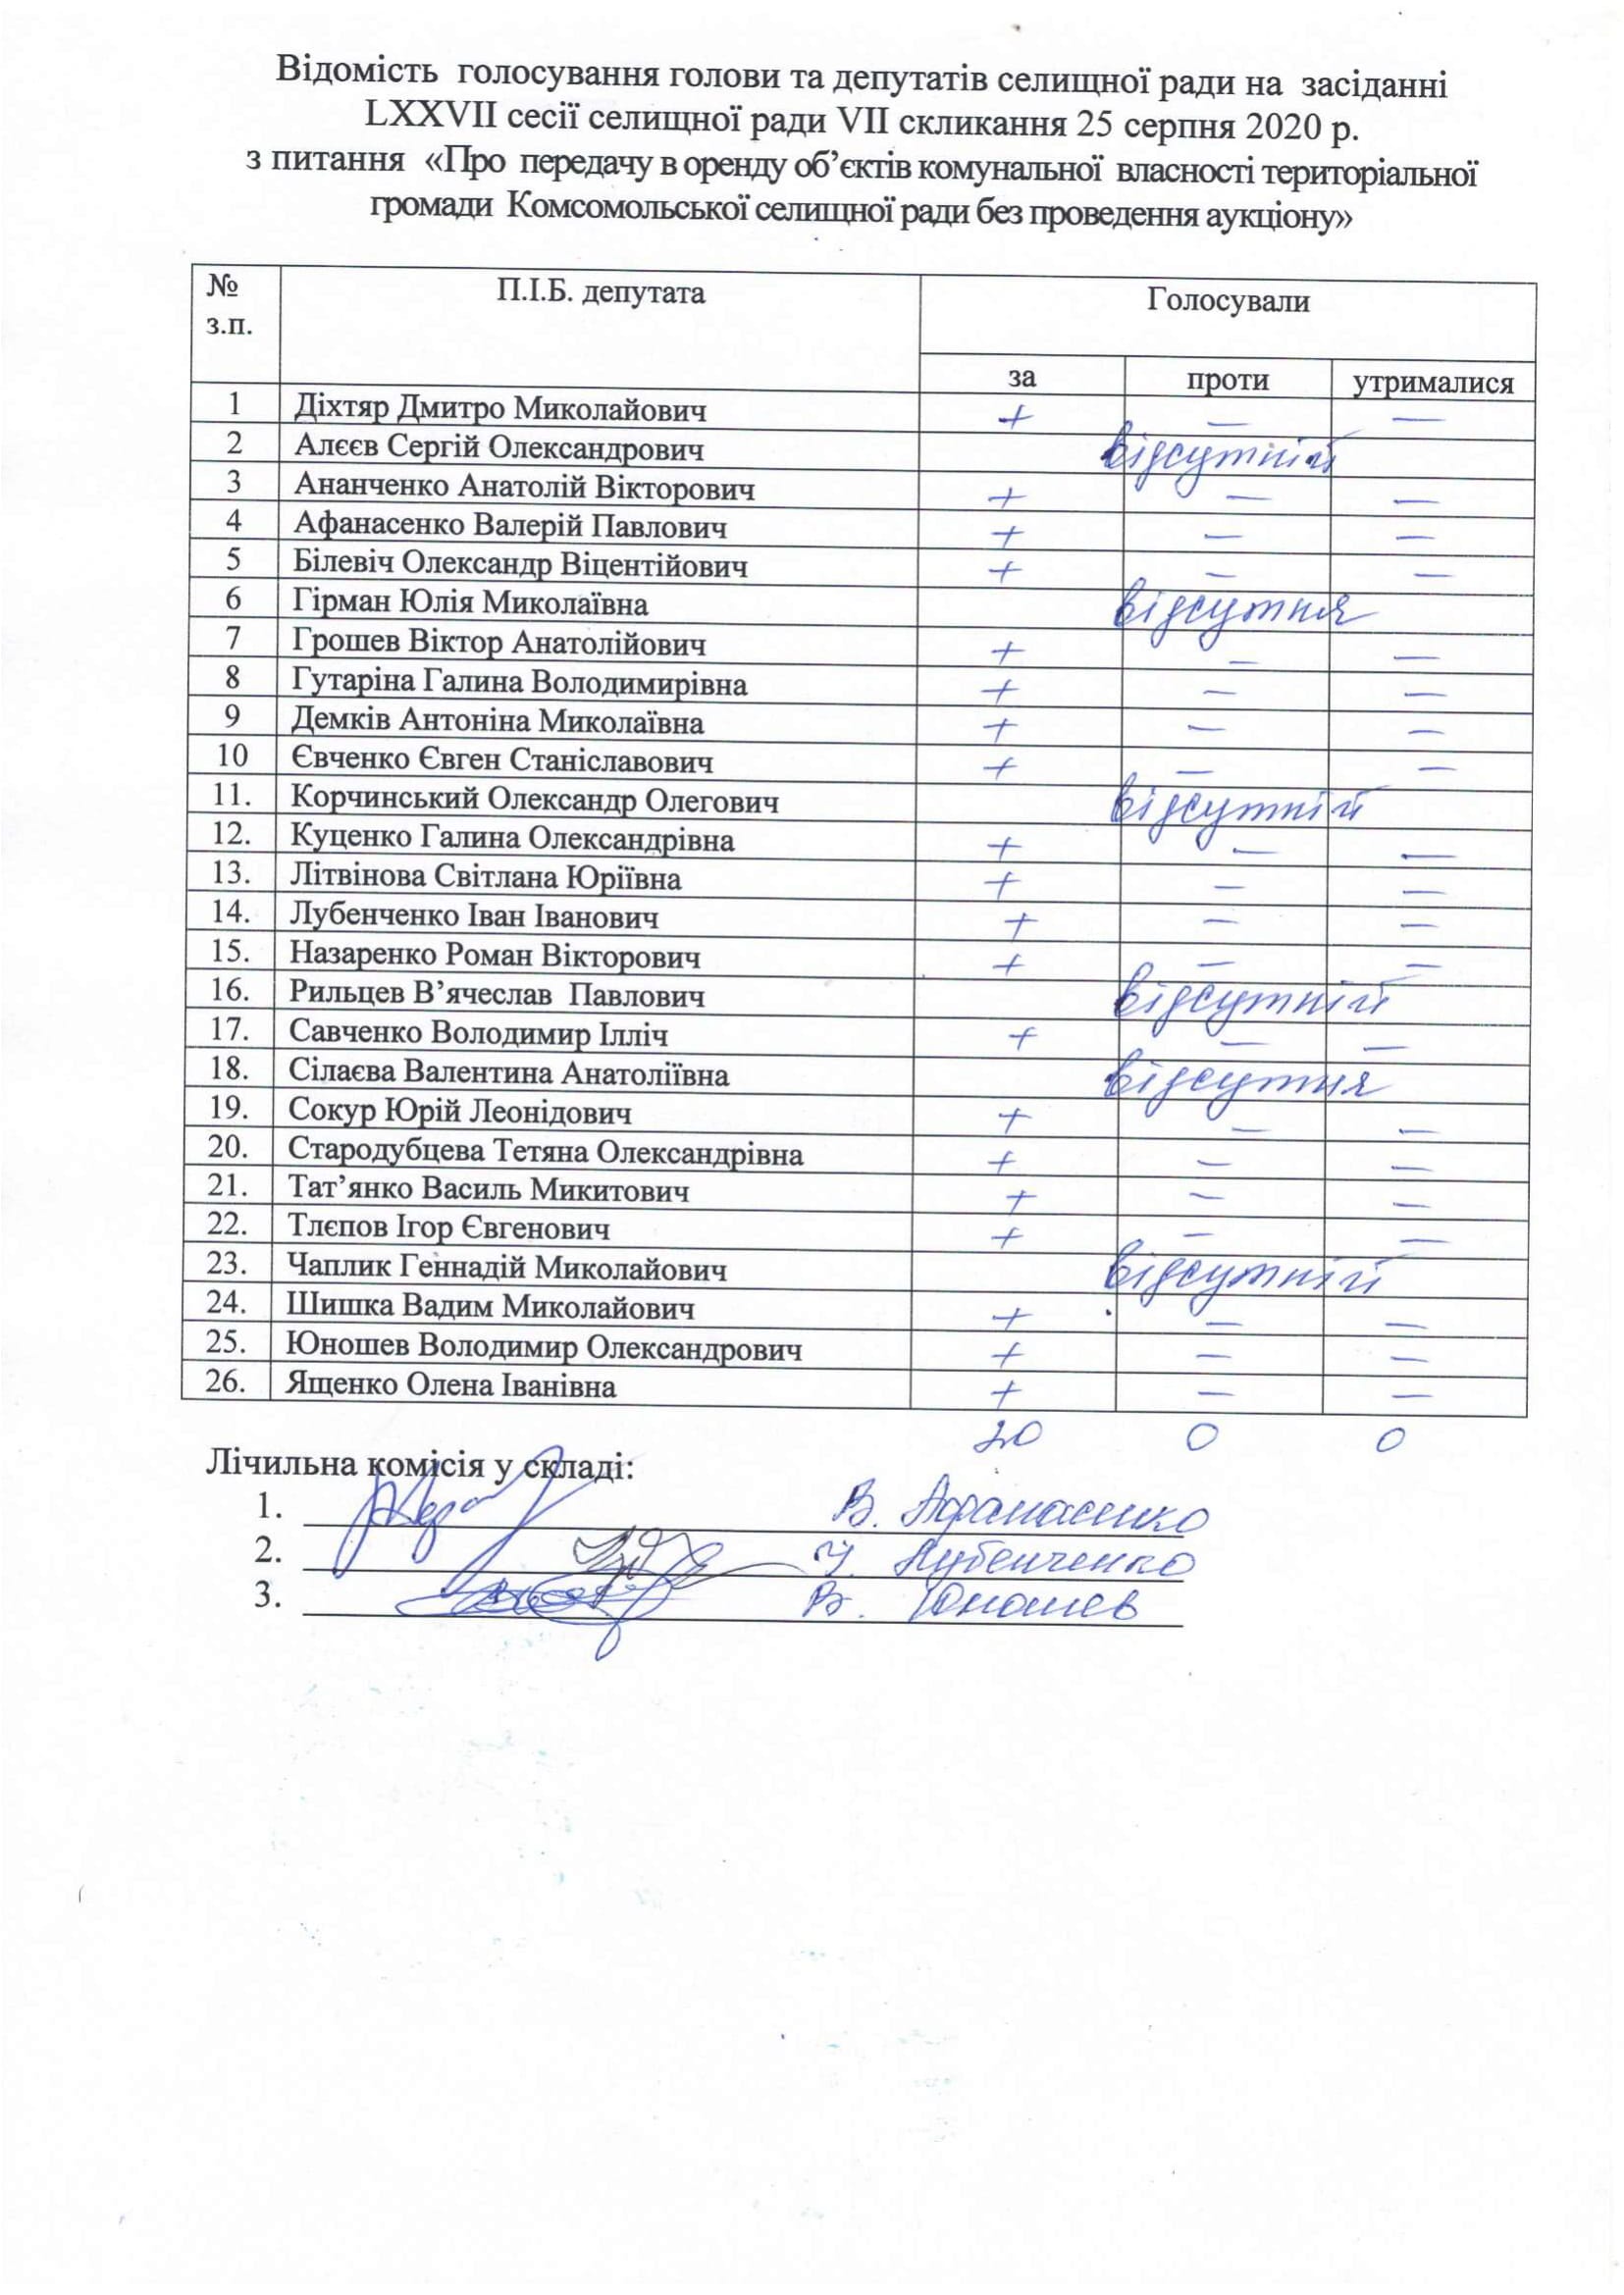 Відомість голосування голови та депутатів селищної ради на засіданні
LXXVII сесії селищної ради VII скликання 25 серпня 2020 р.
з питання «Про передачу в оренду об’єктів комунальної власності територіальної
громади Комсомольської селищної ради без проведення аукціону»
№ з.п. П.І.Б. депутата Голосували
за проти утрималися
1 Діхтяр Дмитро Миколайович + — —
2 Алєєв Сергій Олександрович відсутній
3 Ананченко Анатолій Вікторович + — —
4 Афанасенко Валерій Павлович + — —
5 Білевіч Олександр Віцентійович + — —
6 Гірман Юлія Миколаївна відсутня
7 Грошев Віктор Анатолійович + — —
8 Гутаріна Галина Володимирівна + — —
9 Демків Антоніна Миколаївна + — —
10 Євченко Євген Станіславович + — —
11. Корчинський Олександр Олегович відсутній
12. Куценко Галина Олександрівна + — —
13. Літвінова Світлана Юріївна + — —
14. Лубенченко Іван Іванович + — —
15. Назаренко Роман Вікторович + — —
16. Рильцев В’ячеслав Павлович відсутній
17. Савченко Володимир Ілліч + — —
18. Сілаєва Валентина Анатоліївна відсутня
19. Сокур Юрій Леонідович + — —
20. Стародубцева Тетяна Олександрівна + — —
21. Тат’янко Василь Микитович + — —
22. Тлєпов Ігор Євгенович + — —
23. Чаплик Геннадій Миколайович відсутній
24. Шишка Вадим Миколайович + — —
25. Юношев Володимир Олександрович + — —
26. Ященко Олена Іванівна + — —
20 0 0
Лічильна комісія у складі:
1. В. Афанасенко
2. І. Лубенченко
3. В. Юношев